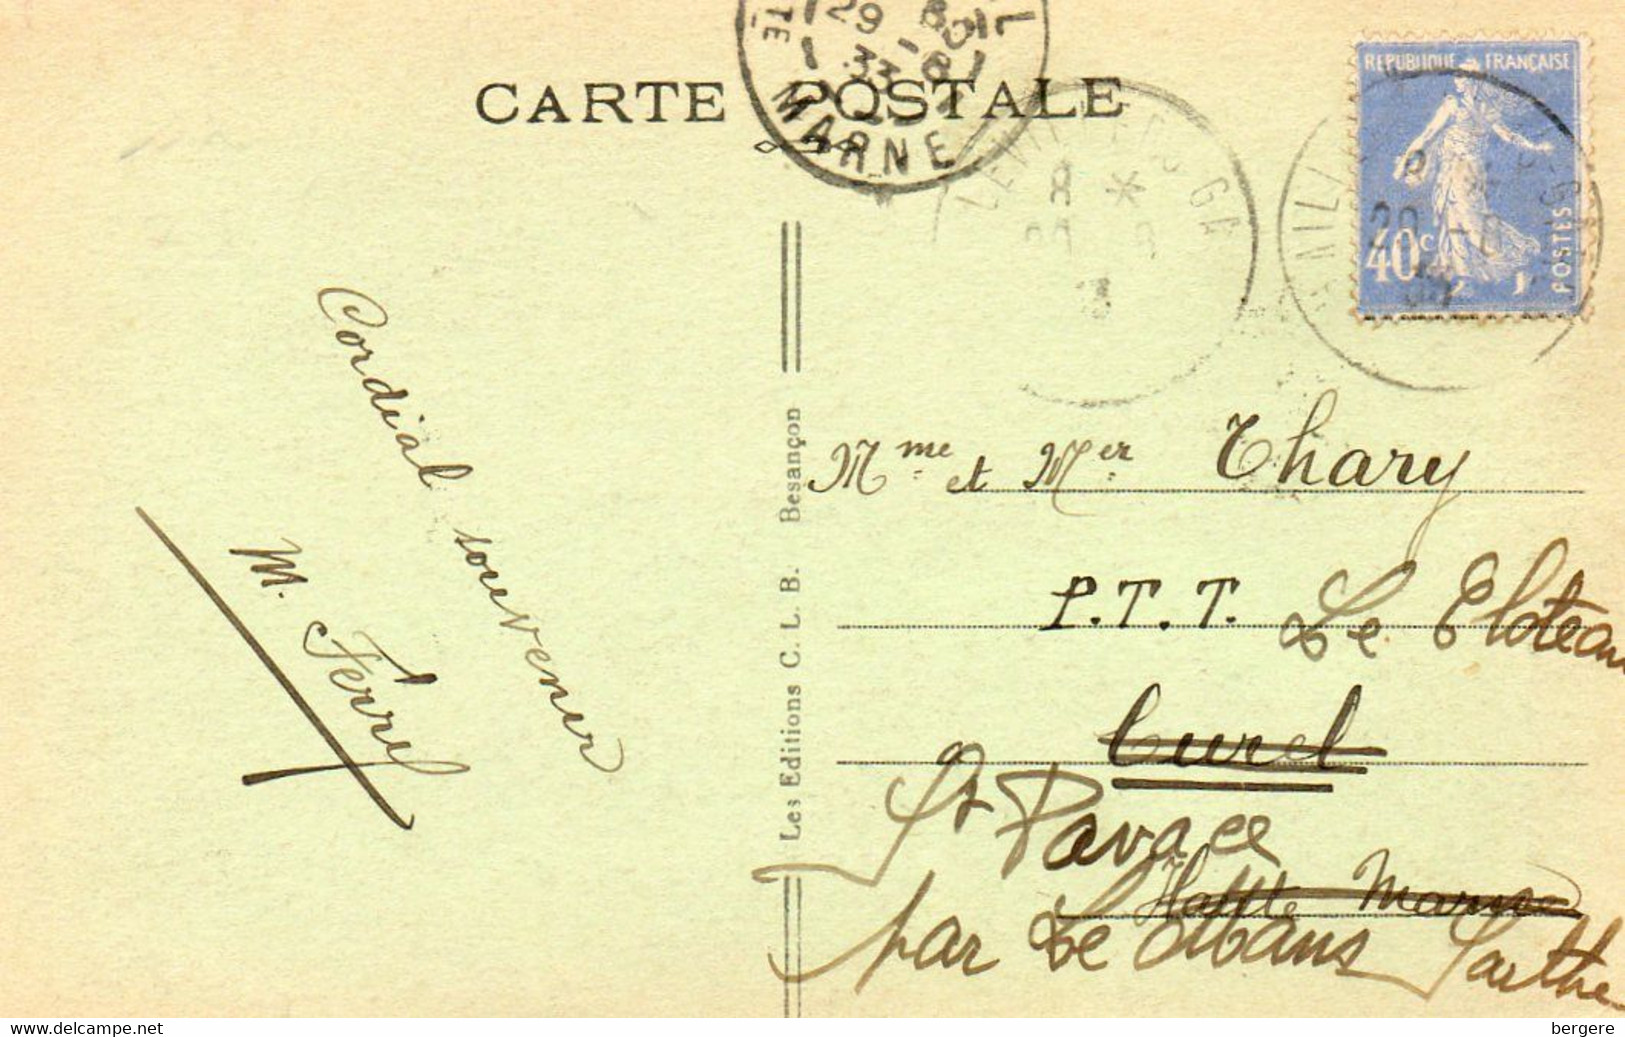 CARTE POSTALE
29 - 8
33
MARNE
8 *
3
REPUBLIQUE FRANÇAISE
40c
POSTES
Cordial souvenir
M. Ferry
Les Editions C. L. B. Besançon
Mme et Mer Thary
P.T.T. Le
Curel
St Pavace
Haute Marne
par Le Mans Sarthe
delcampe.net
bergere